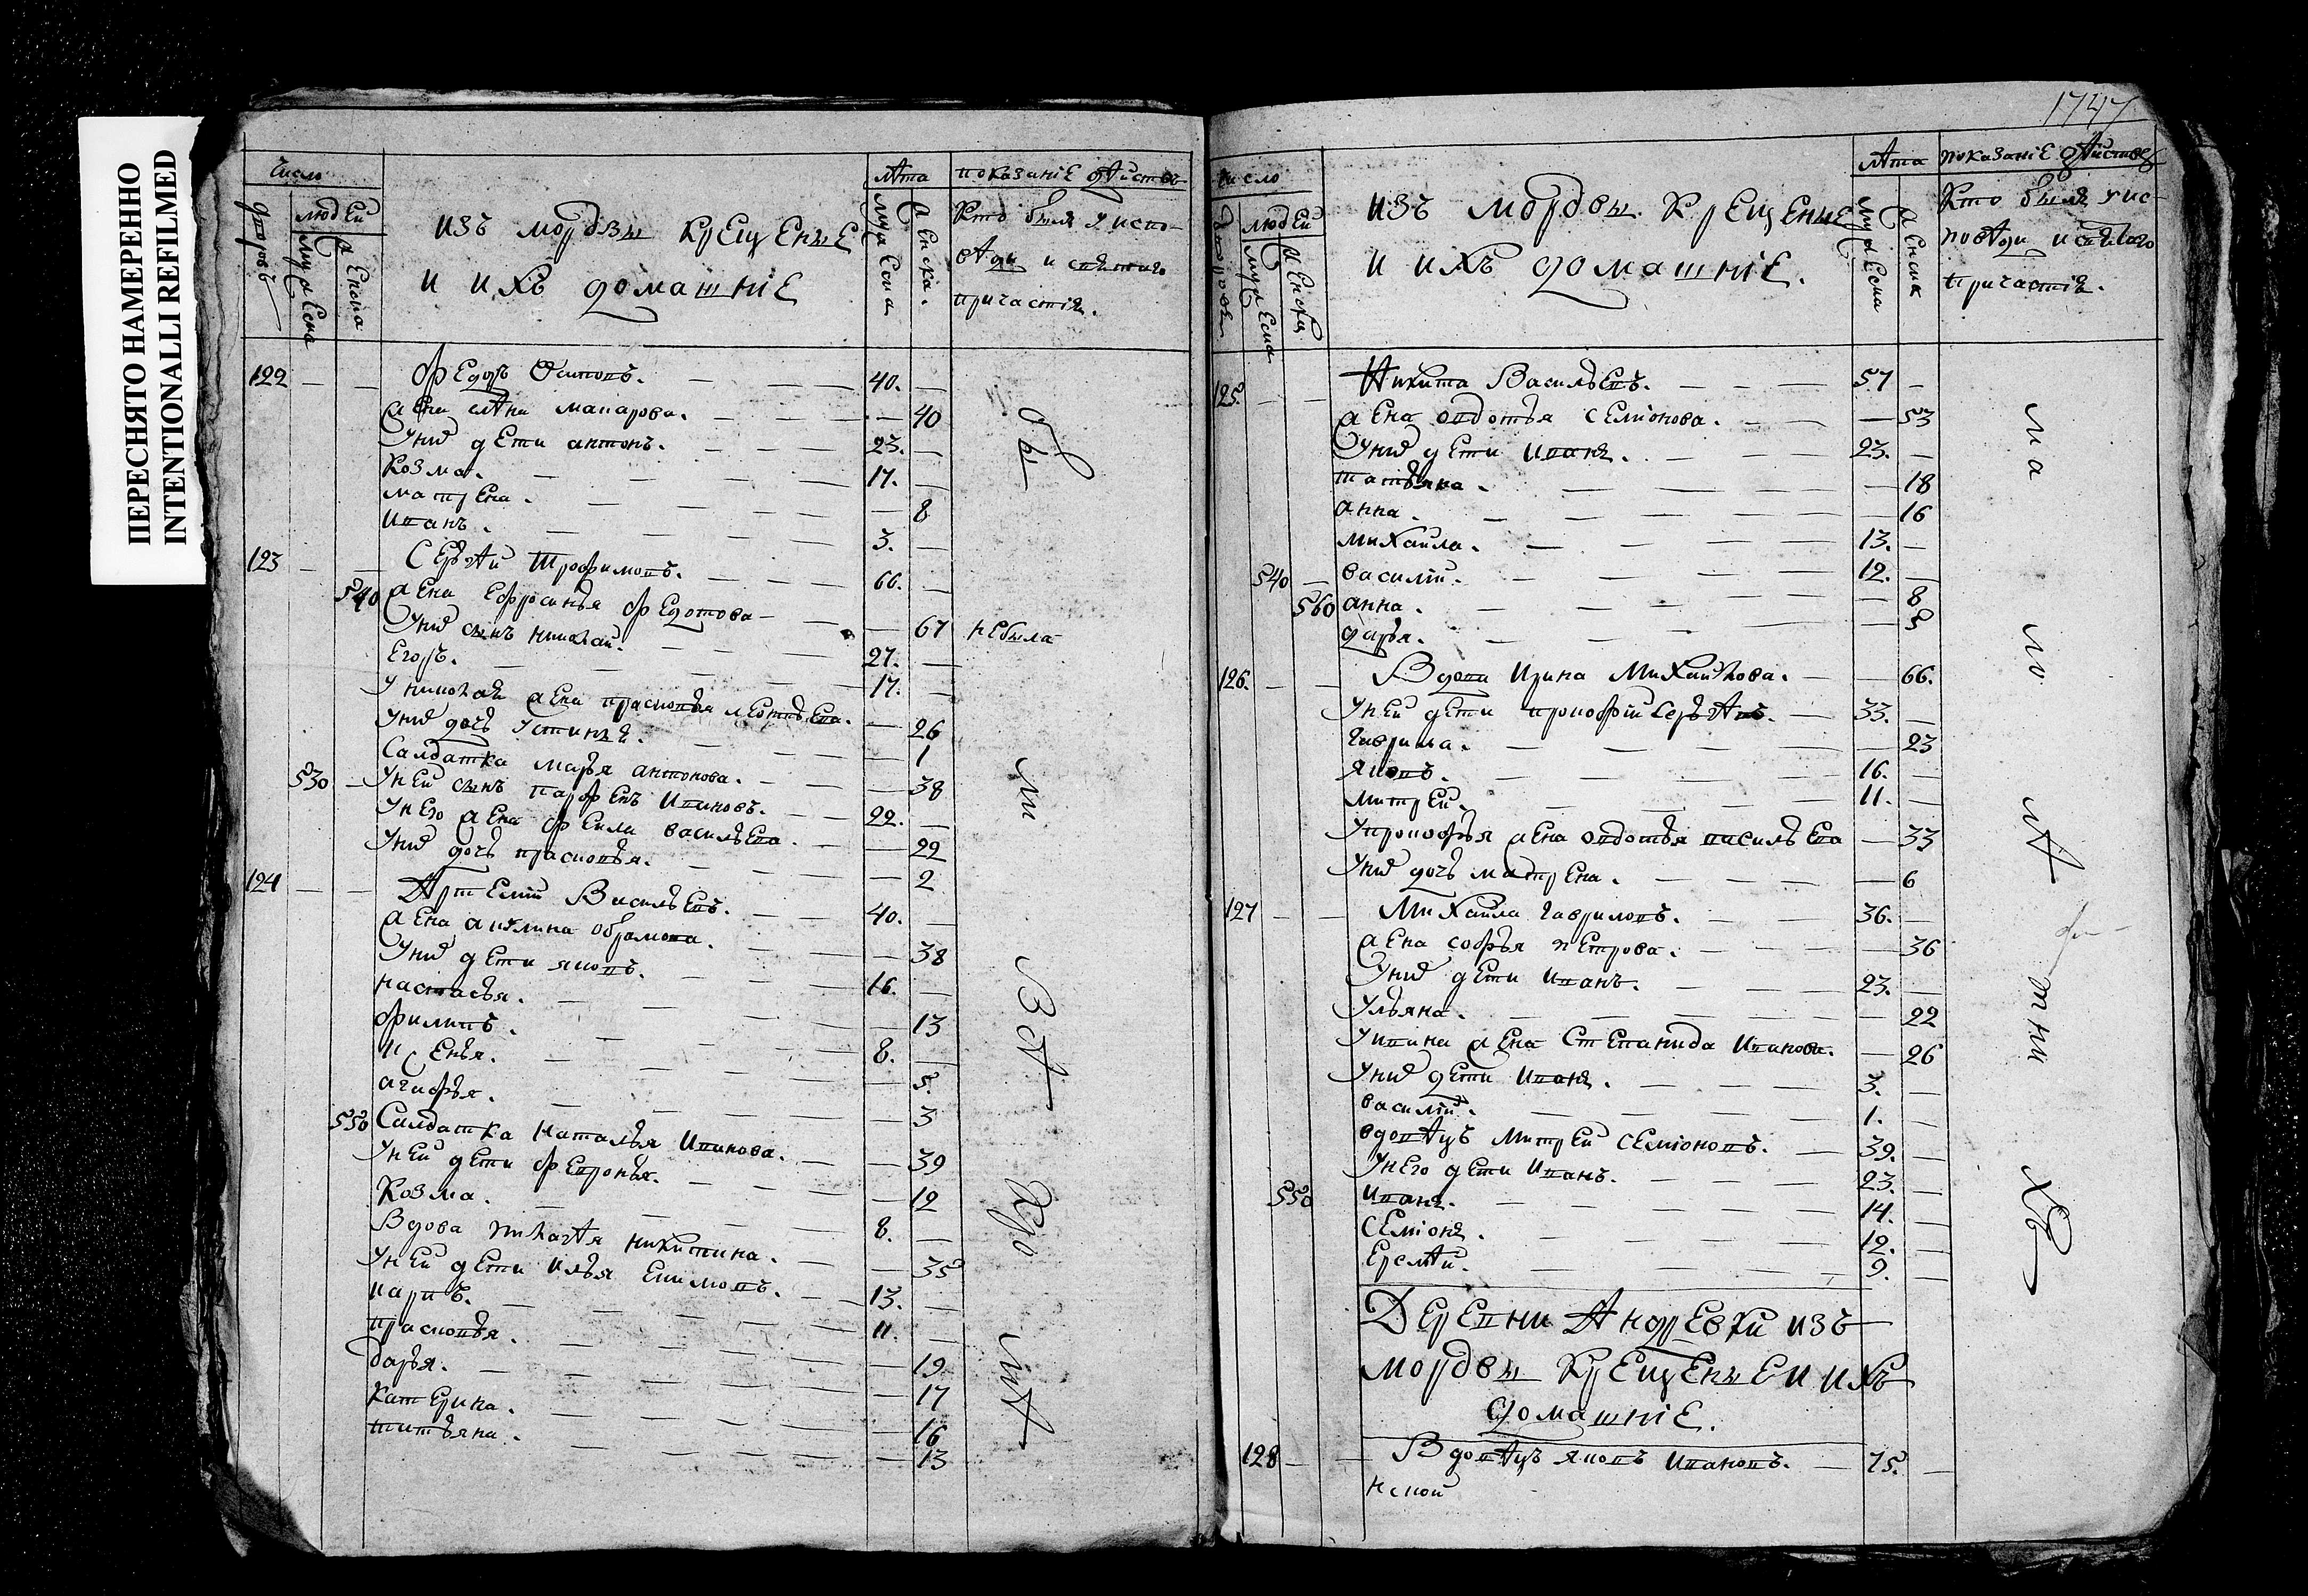 ПЕРЕСНЯТО НАМЕРЕННО
INTENTIONALLI REFILMED
Число
Дворовъ
людей
мужеска
женска
изъ мордвы крещеные
и ихъ домашніе
лѣта
мужеска
женска.
показаніе дѣйствъ
Кто былъ у испо-
вѣди и святаго
причастія.
122 — — Федоръ Осиповъ. — 40. —
жена макарова. — 40
У них дети антонъ. — 23. —
Козма. — 17. —
матрена. — 8
Иванъ. — 3. —
123 — — Сергѣй Трофимовъ. — 66. —
540 жена Ефросинья Федотова — — 67 небыла
У них сынъ николай. — 27. —
Егоръ. — 17. —
У николая жена прасковья леонтьева. — 26
У них дочь Устинья. — 1
Салдатка марья антонова. — 38
530 — У ней сынъ парфенъ Ивановъ. — 22. —
У него жена васильева. — 22
У них дочь прасковья. — 2
124 — — Артемій Васильевъ. — 40. —
жена акулина обрамова. — 38
У них дети яковъ. — 16. —
настасья. — 13
филипъ. — 8. —
ксенья. — 5.
агафья. — 3
550 Салдатка Наталья Иванова. — 39
У ней дети февронья. — 12
Козма. — 8. —
Вдова никитина. — 35
У ней дети илья 13. —
карпъ. — 11. —
прасковья. — 19
дарья. — 17
Катерина. — 16
татьяна. — 13
бы
ли
Всѣ
Хро
лѣ
1747
Число
людей
мужеска
женска
изъ мордвы крещеные
и ихъ домашніе.
лѣта
мужеска
женска
показаніе дѣйствъ
Кто былъ у ис-
повѣди и святаго
причастія.
125. — — Никита Васильевъ. — 57 —
жена овдотья семіонова. — 53
У них дети Иванъ. — 23. —
татьяна. — 18
анна. — 16
михаила. — 13. —
540 — василій. — 12. —
560 анна. — 8
дарья. —
126. — — Вдова Ирина Михайлова. — 66.
У ней дети прокофій Сергѣевъ. — 33. —
гаврила. — 23
яковъ. — 16. —
митрей. — 11. —
У прокофья жена овдотья васильева — 33
У них дочь матрена. — 6
127 — — Михаила гавриловъ. — 36. —
жена софья петрова. — 36
У них дети Иванъ. — 23. —
Ульяна. — 22
У ивана жена Степанида Иванова. — 26
У них дети Иванъ. — 3. —
василій. — 1. —
вдовѣцъ митрей семіоновъ. — 39. —
У него дети Иванъ. — 23. —
550 Иванъ. — 14. —
семіонъ. — 12. —
Ермѣй. — 9. —
Деревни Андревки изъ
мордвы Крещеные и ихъ
домашніе.
128 — — Вдовѣцъ яковъ Ивановъ. — 75. —
ма
ло
лѣ
тни
хъ